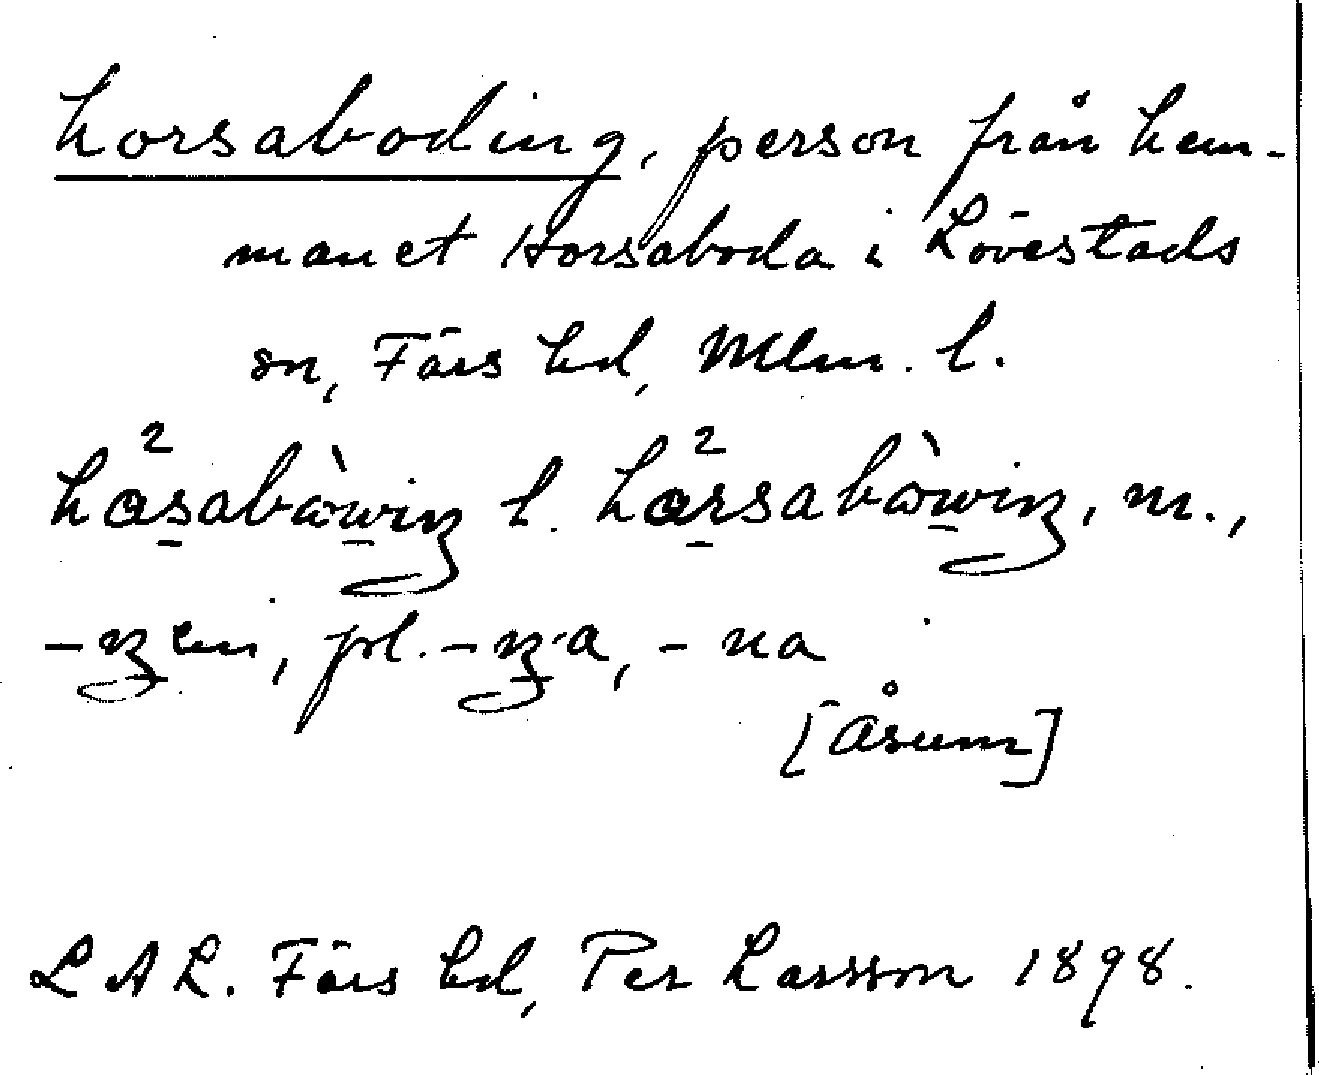 horsaboding, person från hem-
manet Horsaboda i Lövestads
sn, Färs hd, Mlm. l.
hå²sabὼwiŋ l. hå²rsabὼwiŋ, m.,
-ŋen, pl. -ŋ·a, -na
[Åsum]
LAL. Färs hd, Per Larsson 1898.